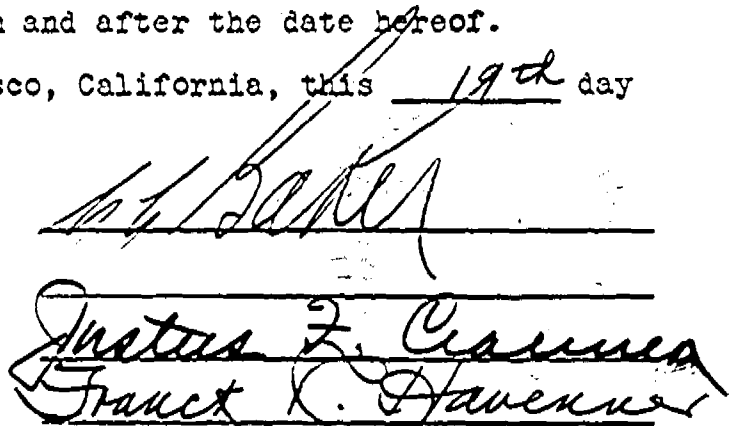 n and after the date hereof.
sco, California, this 19th day
Baker
Justus F. Craemer
Franck R. Havenner